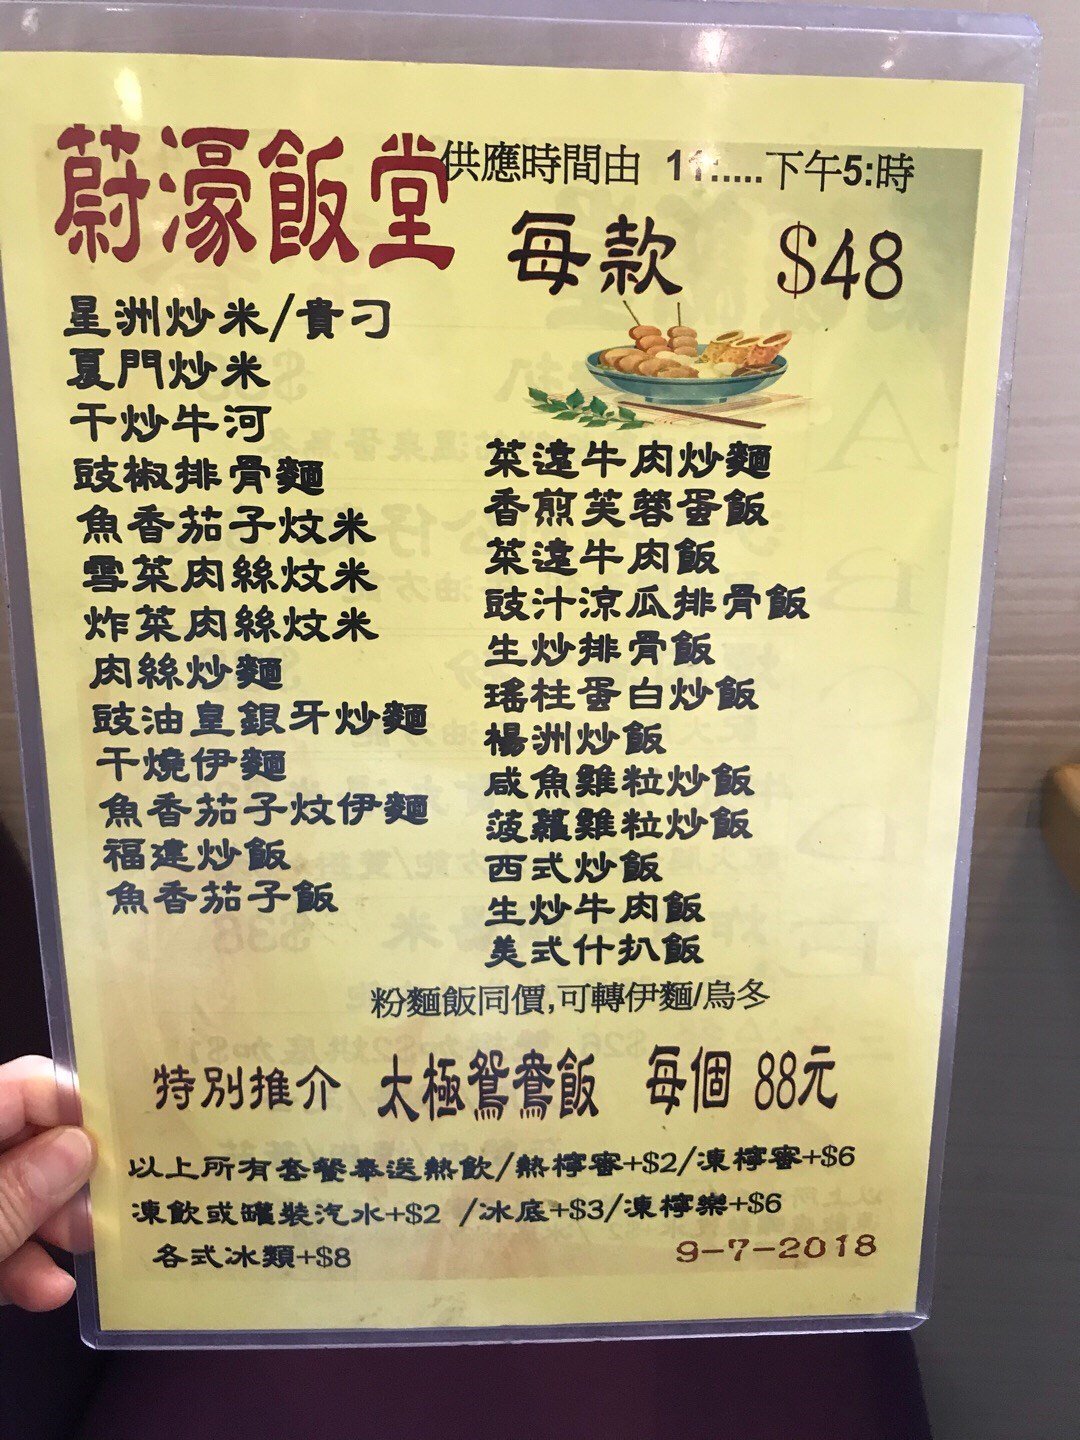 蔚濠飯堂
供應時間由 11:....下午5:時
每款 $48
星洲炒米/貴刁
夏門炒米
干炒牛河
豉椒排骨麵
魚香茄子炆米
雪菜肉絲炆米
炸菜肉絲炆米
肉絲炒麵
豉油皇銀牙炒麵
干燒伊麵
魚香茄子炆伊麵
福建炒飯
魚香茄子飯
菜遠牛肉炒麵
香煎芙蓉蛋飯
菜遠牛肉飯
豉汁涼瓜排骨飯
生炒排骨飯
瑤柱蛋白炒飯
楊洲炒飯
咸魚雞粒炒飯
菠蘿雞粒炒飯
西式炒飯
生炒牛肉飯
美式什扒飯
粉麵飯同價,可轉伊麵/烏冬
特別推介 太極鴛鴦飯 每個 88元
以上所有套餐奉送熱飲/熱檸蜜+$2/凍檸蜜+$6
凍飲或罐裝汽水+$2 /冰底+$3/凍檸樂+$6
各式冰類+$8
9-7-2018